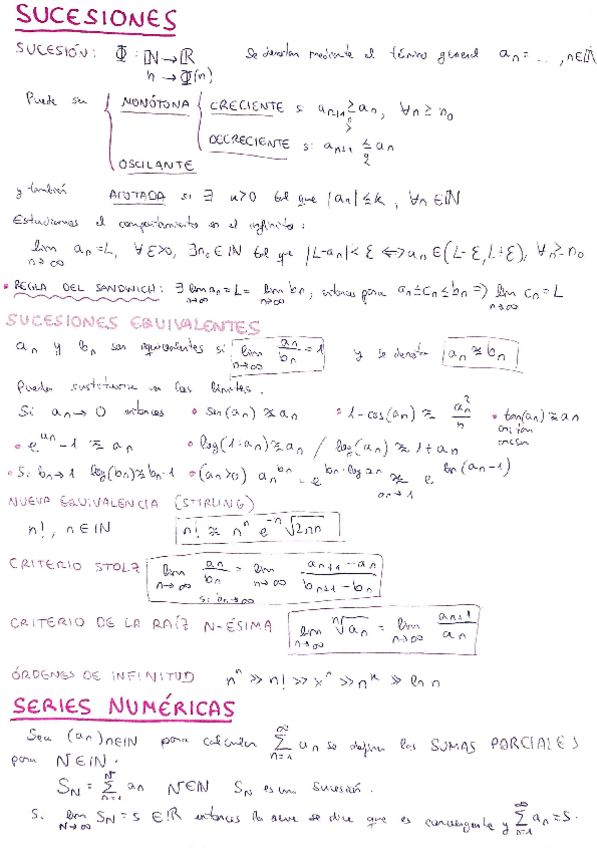 SUCESIONES
SUCESIÓN: Φ : ℕ → ℝ Se denotan mediante el término general aₙ = ... , n∈ℕ
n → Φ(n)
Puede ser { MONÓTONA { CRECIENTE si aₙ₊₁ ≥ aₙ, ∀n ≥ n₀
DECRECIENTE si aₙ₊₁ ≤ aₙ
OSCILANTE
y también ACOTADA si ∃ k>0 tal que |aₙ| ≤ k, ∀n ∈ ℕ
Estudiamos el comportamiento en el infinito:
lim n→∞ aₙ = L, ∀ε>0, ∃n₀ ∈ ℕ tal que |L-aₙ| < ε ⟺ aₙ ∈ (L-ε, L+ε), ∀n ≥ n₀
• REGLA DEL SANDWICH: ∃ lim n→∞ aₙ = L = lim n→∞ bₙ, entonces para aₙ ≤ cₙ ≤ bₙ ⟹ lim n→∞ cₙ = L
SUCESIONES EQUIVALENTES
aₙ y bₙ son equivalentes si lim n→∞ aₙ/bₙ = 1 y se denota aₙ ≈ bₙ
Pueden sustituirse en los límites.
Si aₙ → 0 entonces • sen(aₙ) ≈ aₙ • 1-cos(aₙ) ≈ aₙ²/n • tan(aₙ) ≈ aₙ
• e^(aₙ) - 1 ≈ aₙ • log(1+aₙ) ≈ aₙ / log(aₙ) ≈ 1+aₙ
• Si bₙ→1 log(bₙ) ≈ bₙ-1 • (aₙ>0) aₙ^(bₙ) = e^(bₙ·log aₙ) ≈ aₙ→1 e^(bₙ(aₙ-1))
NUEVA EQUIVALENCIA (STIRLING)
n!, n∈ℕ n! ≈ nⁿ e⁻ⁿ √2πn
CRITERIO STOLZ lim n→∞ aₙ/bₙ = lim n→∞ (aₙ₊₁ - aₙ)/(bₙ₊₁ - bₙ)
CRITERIO DE LA RAÍZ N-ÉSIMA lim n→∞ ⁿ√aₙ = lim n→∞ aₙ₊₁/aₙ
ÓRDENES DE INFINITUD nⁿ >> n! >> xⁿ >> nᵏ >> ln n
SERIES NUMÉRICAS
Sea (aₙ)n∈ℕ para calcular ∑ n=1 ∞ aₙ se definen las SUMAS PARCIALES
para N∈ℕ.
S_N = ∑ n=1 N aₙ N∈ℕ S_N es una sucesión.
Si lim N→∞ S_N = s ∈ ℝ entonces la serie se dice que es convergente y ∑ n=1 ∞ aₙ = s.